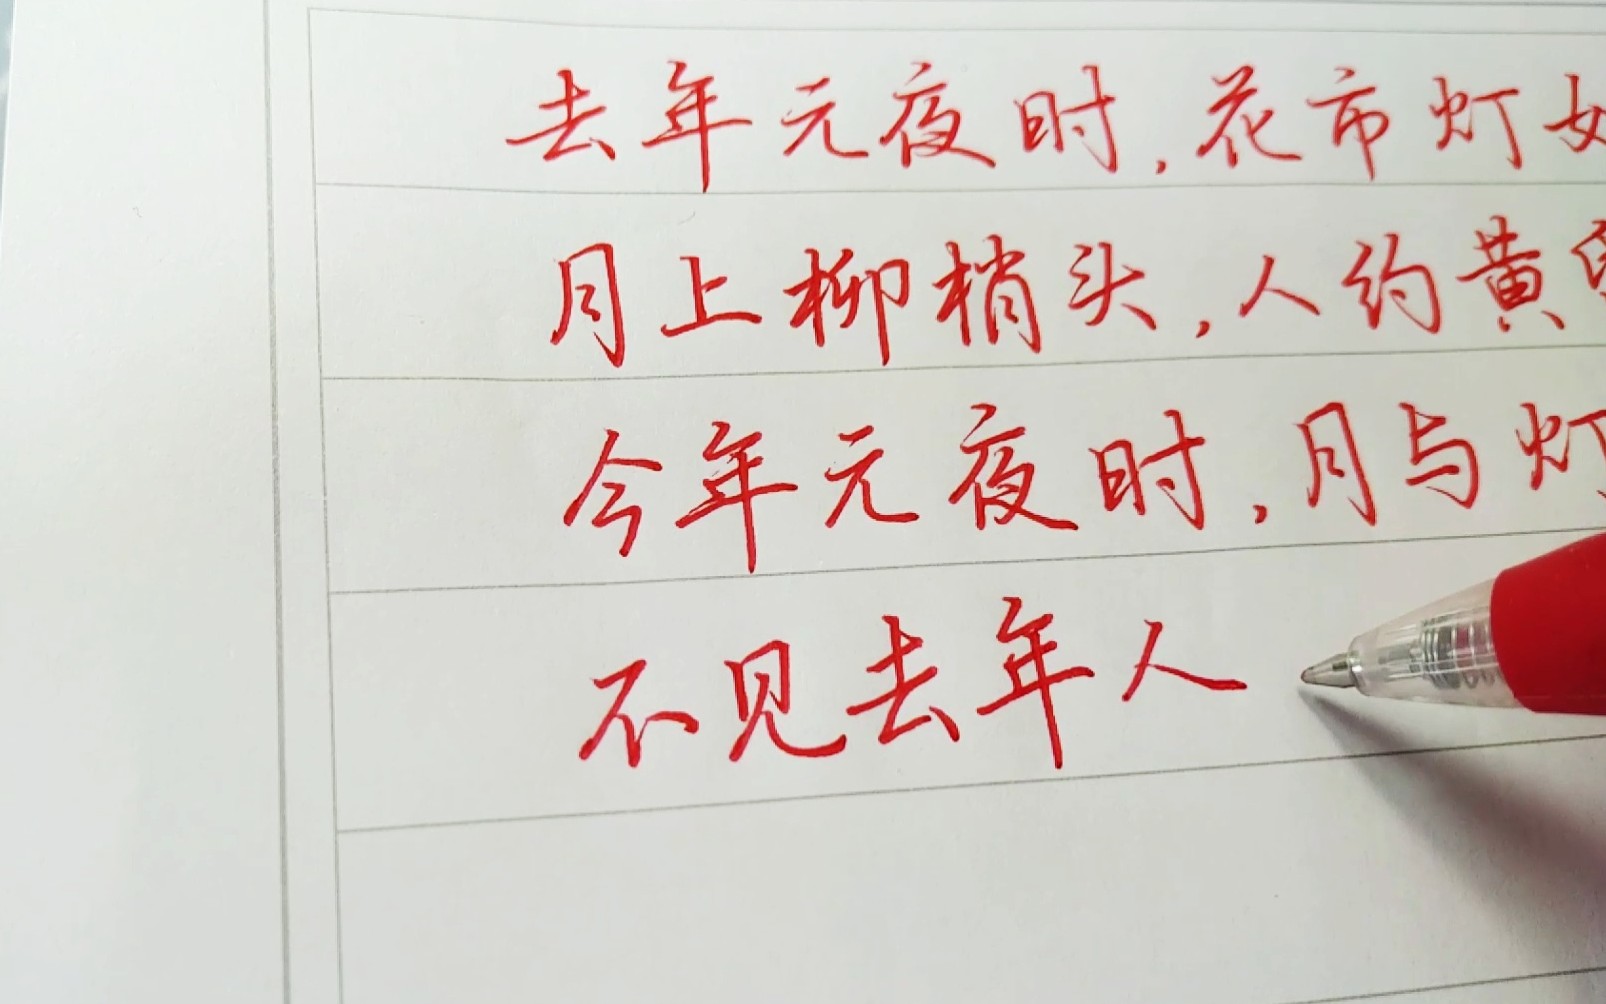 去年元夜时，花市灯
月上柳梢头，人约黄
今年元夜时，月与灯
不见去年人